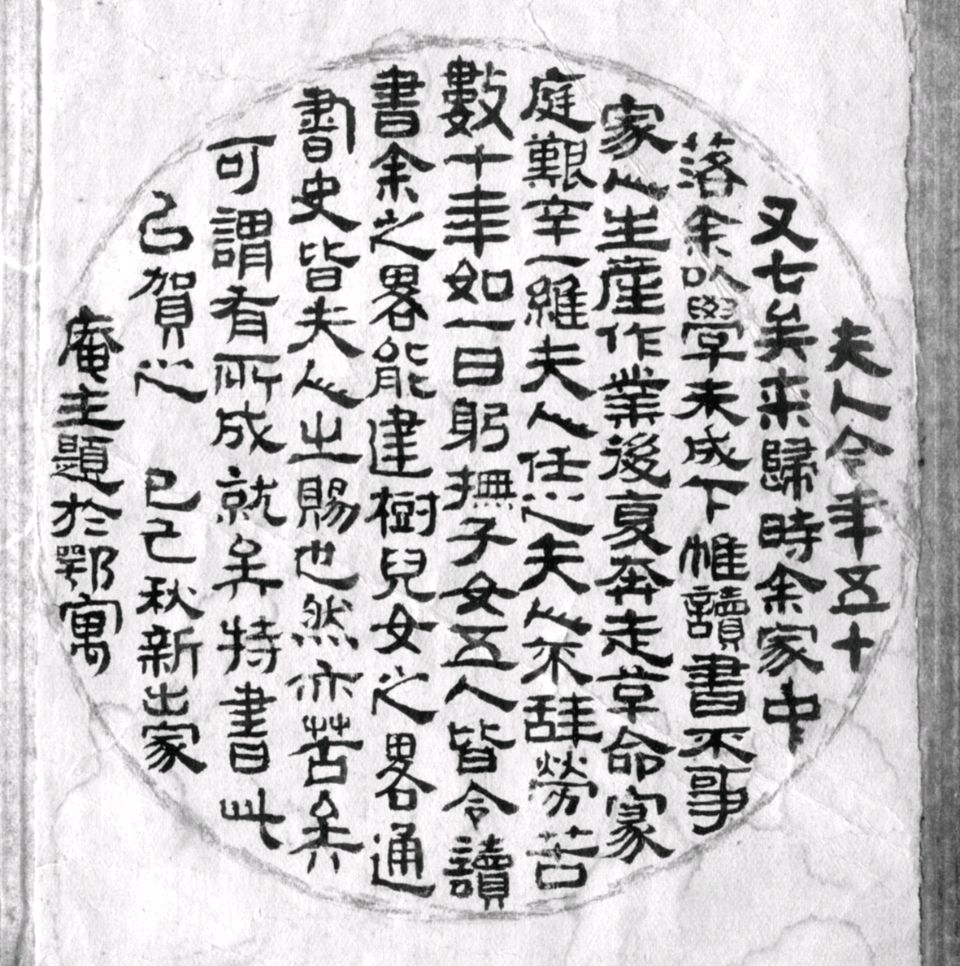 夫人今年五十
又七矣来歸時余家中
落余以學未成下帷讀書不事
家人生產作業後夏奔走革命家
庭艱辛一維夫人任之夫人不辞勞苦
數十年如一日躬撫子女五人皆令讀
書余之畧能建樹兒女之畧通
書史皆夫人之賜也然亦苦矣
可謂有所成就矣特書此
己賀之 己巳秋新出家
庵主題於鄂寓